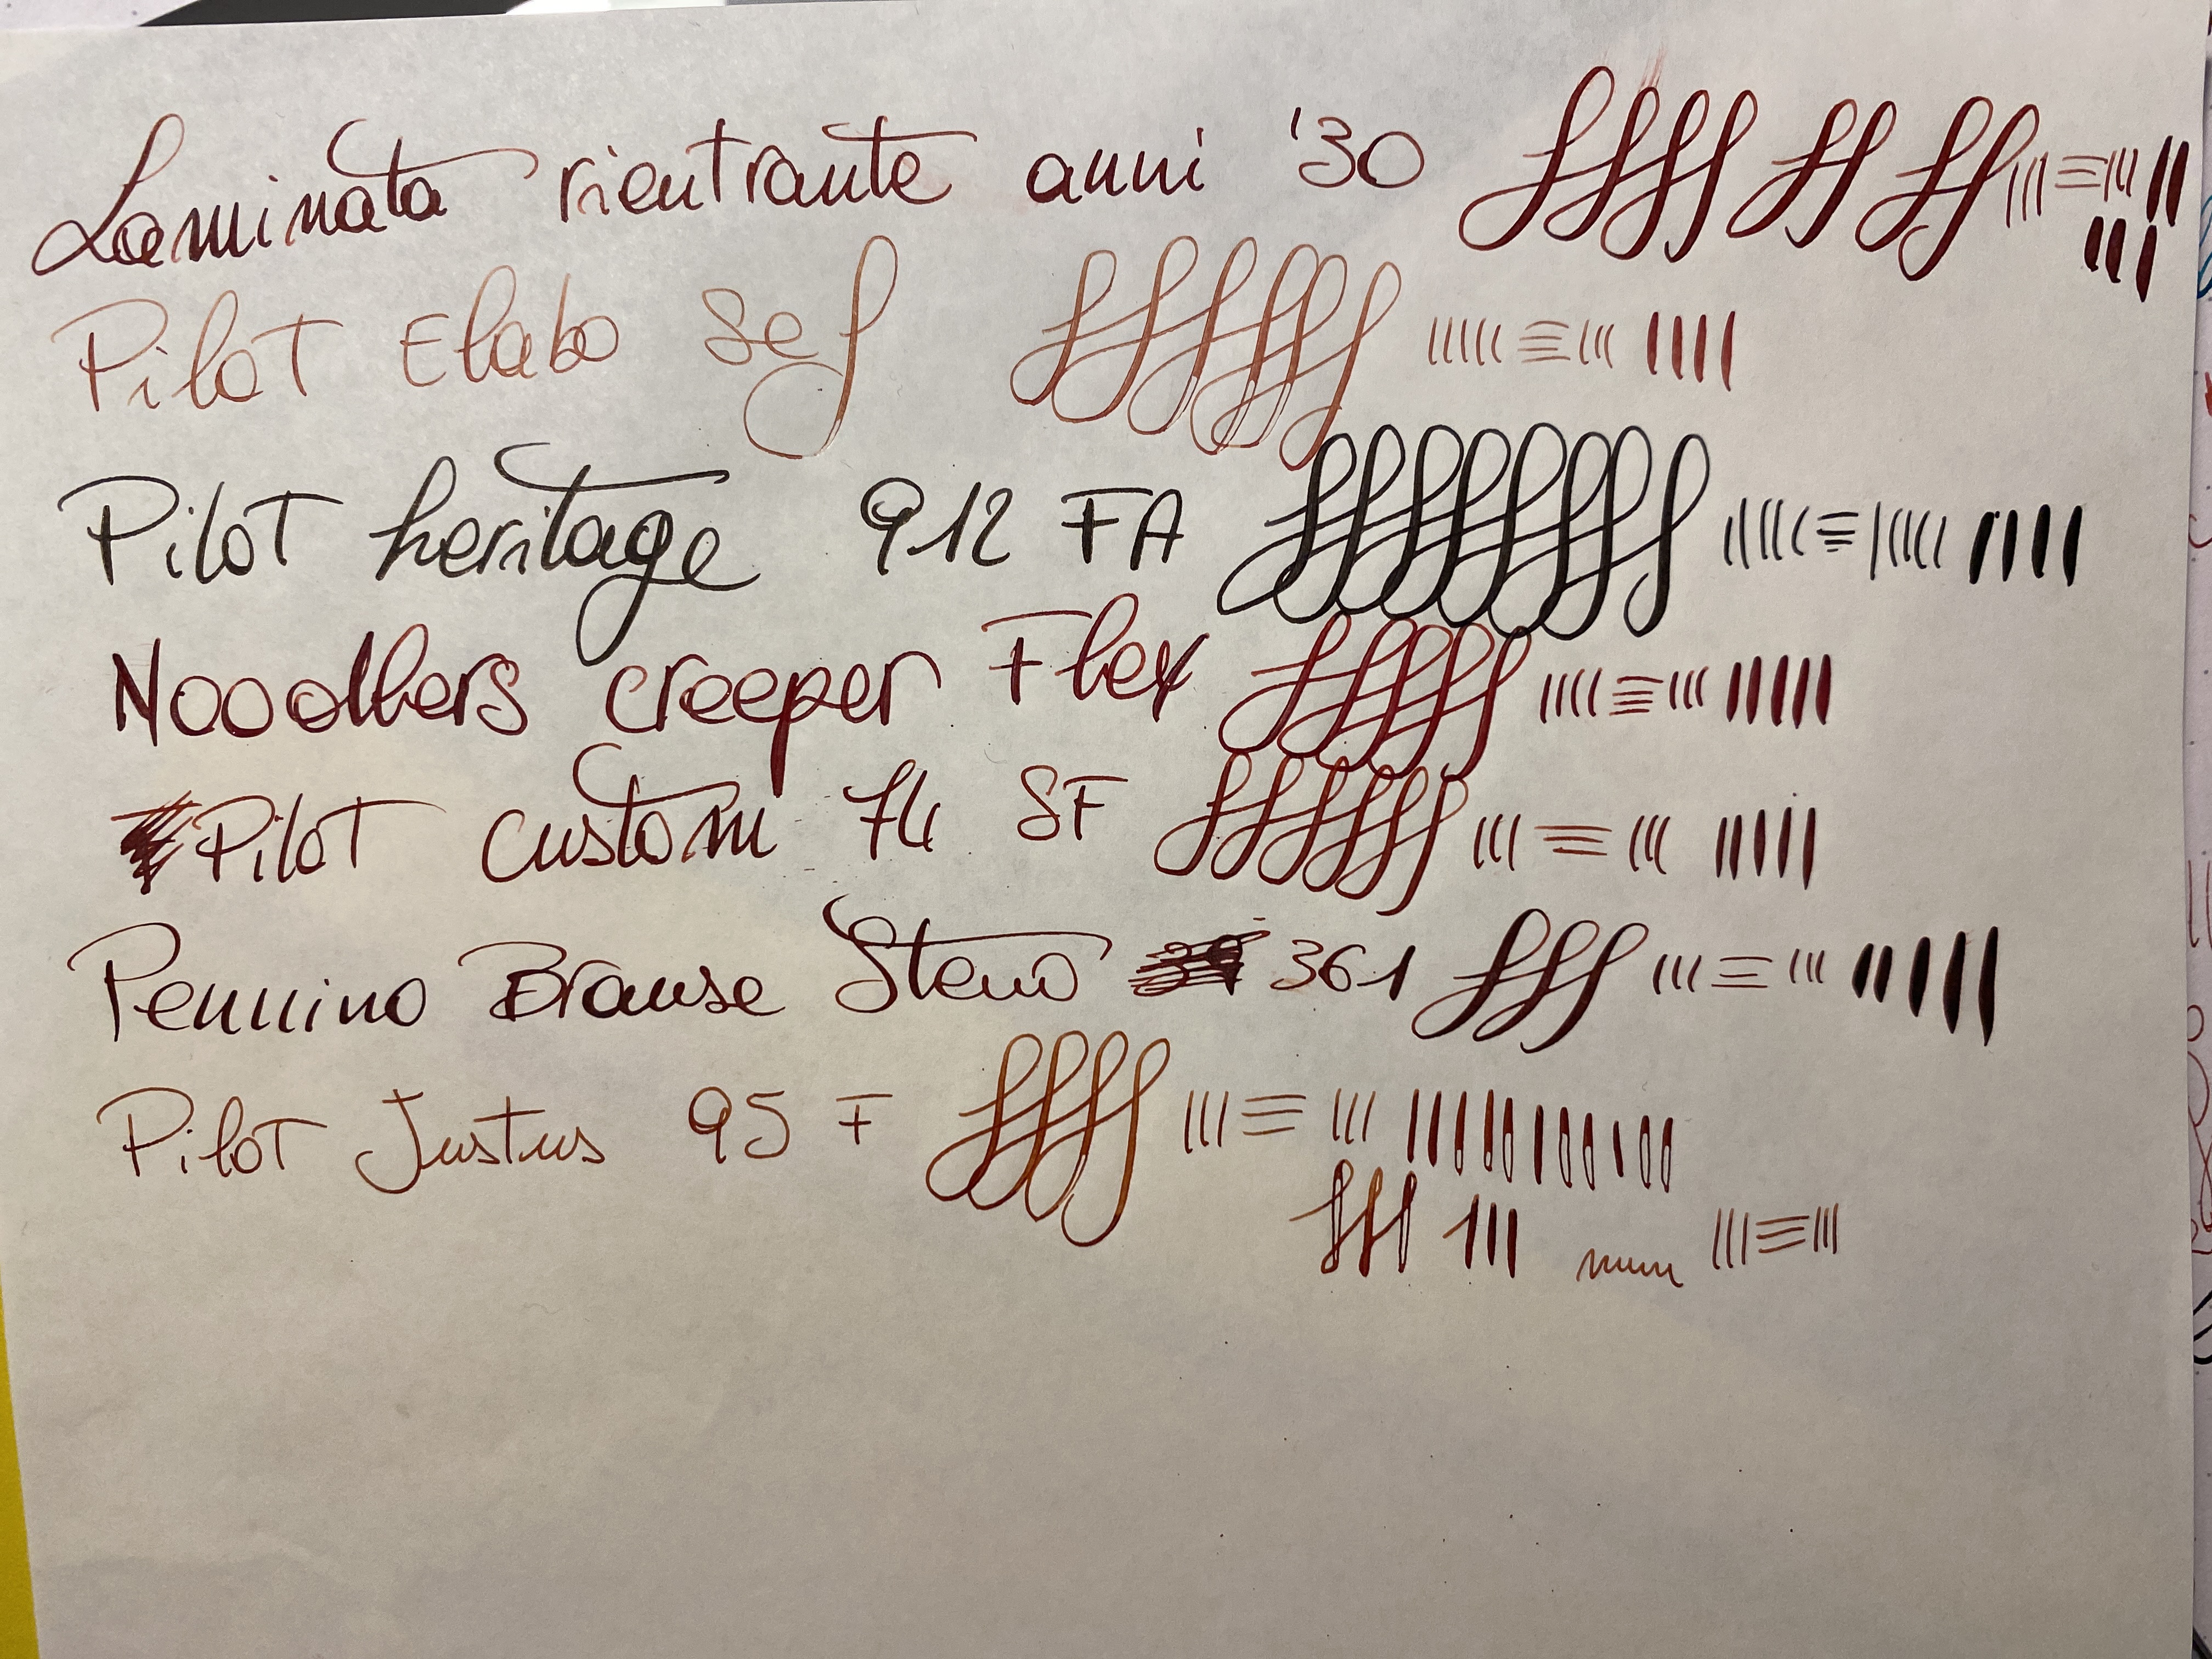 Laminata rientrante anni '30
Pilot Elabo Sef
Pilot heritage 912 FA
Nooodlers creeper Flex
Pilot custom 74 SF
Pennino Brause Steno 361
Pilot Justus 95 F